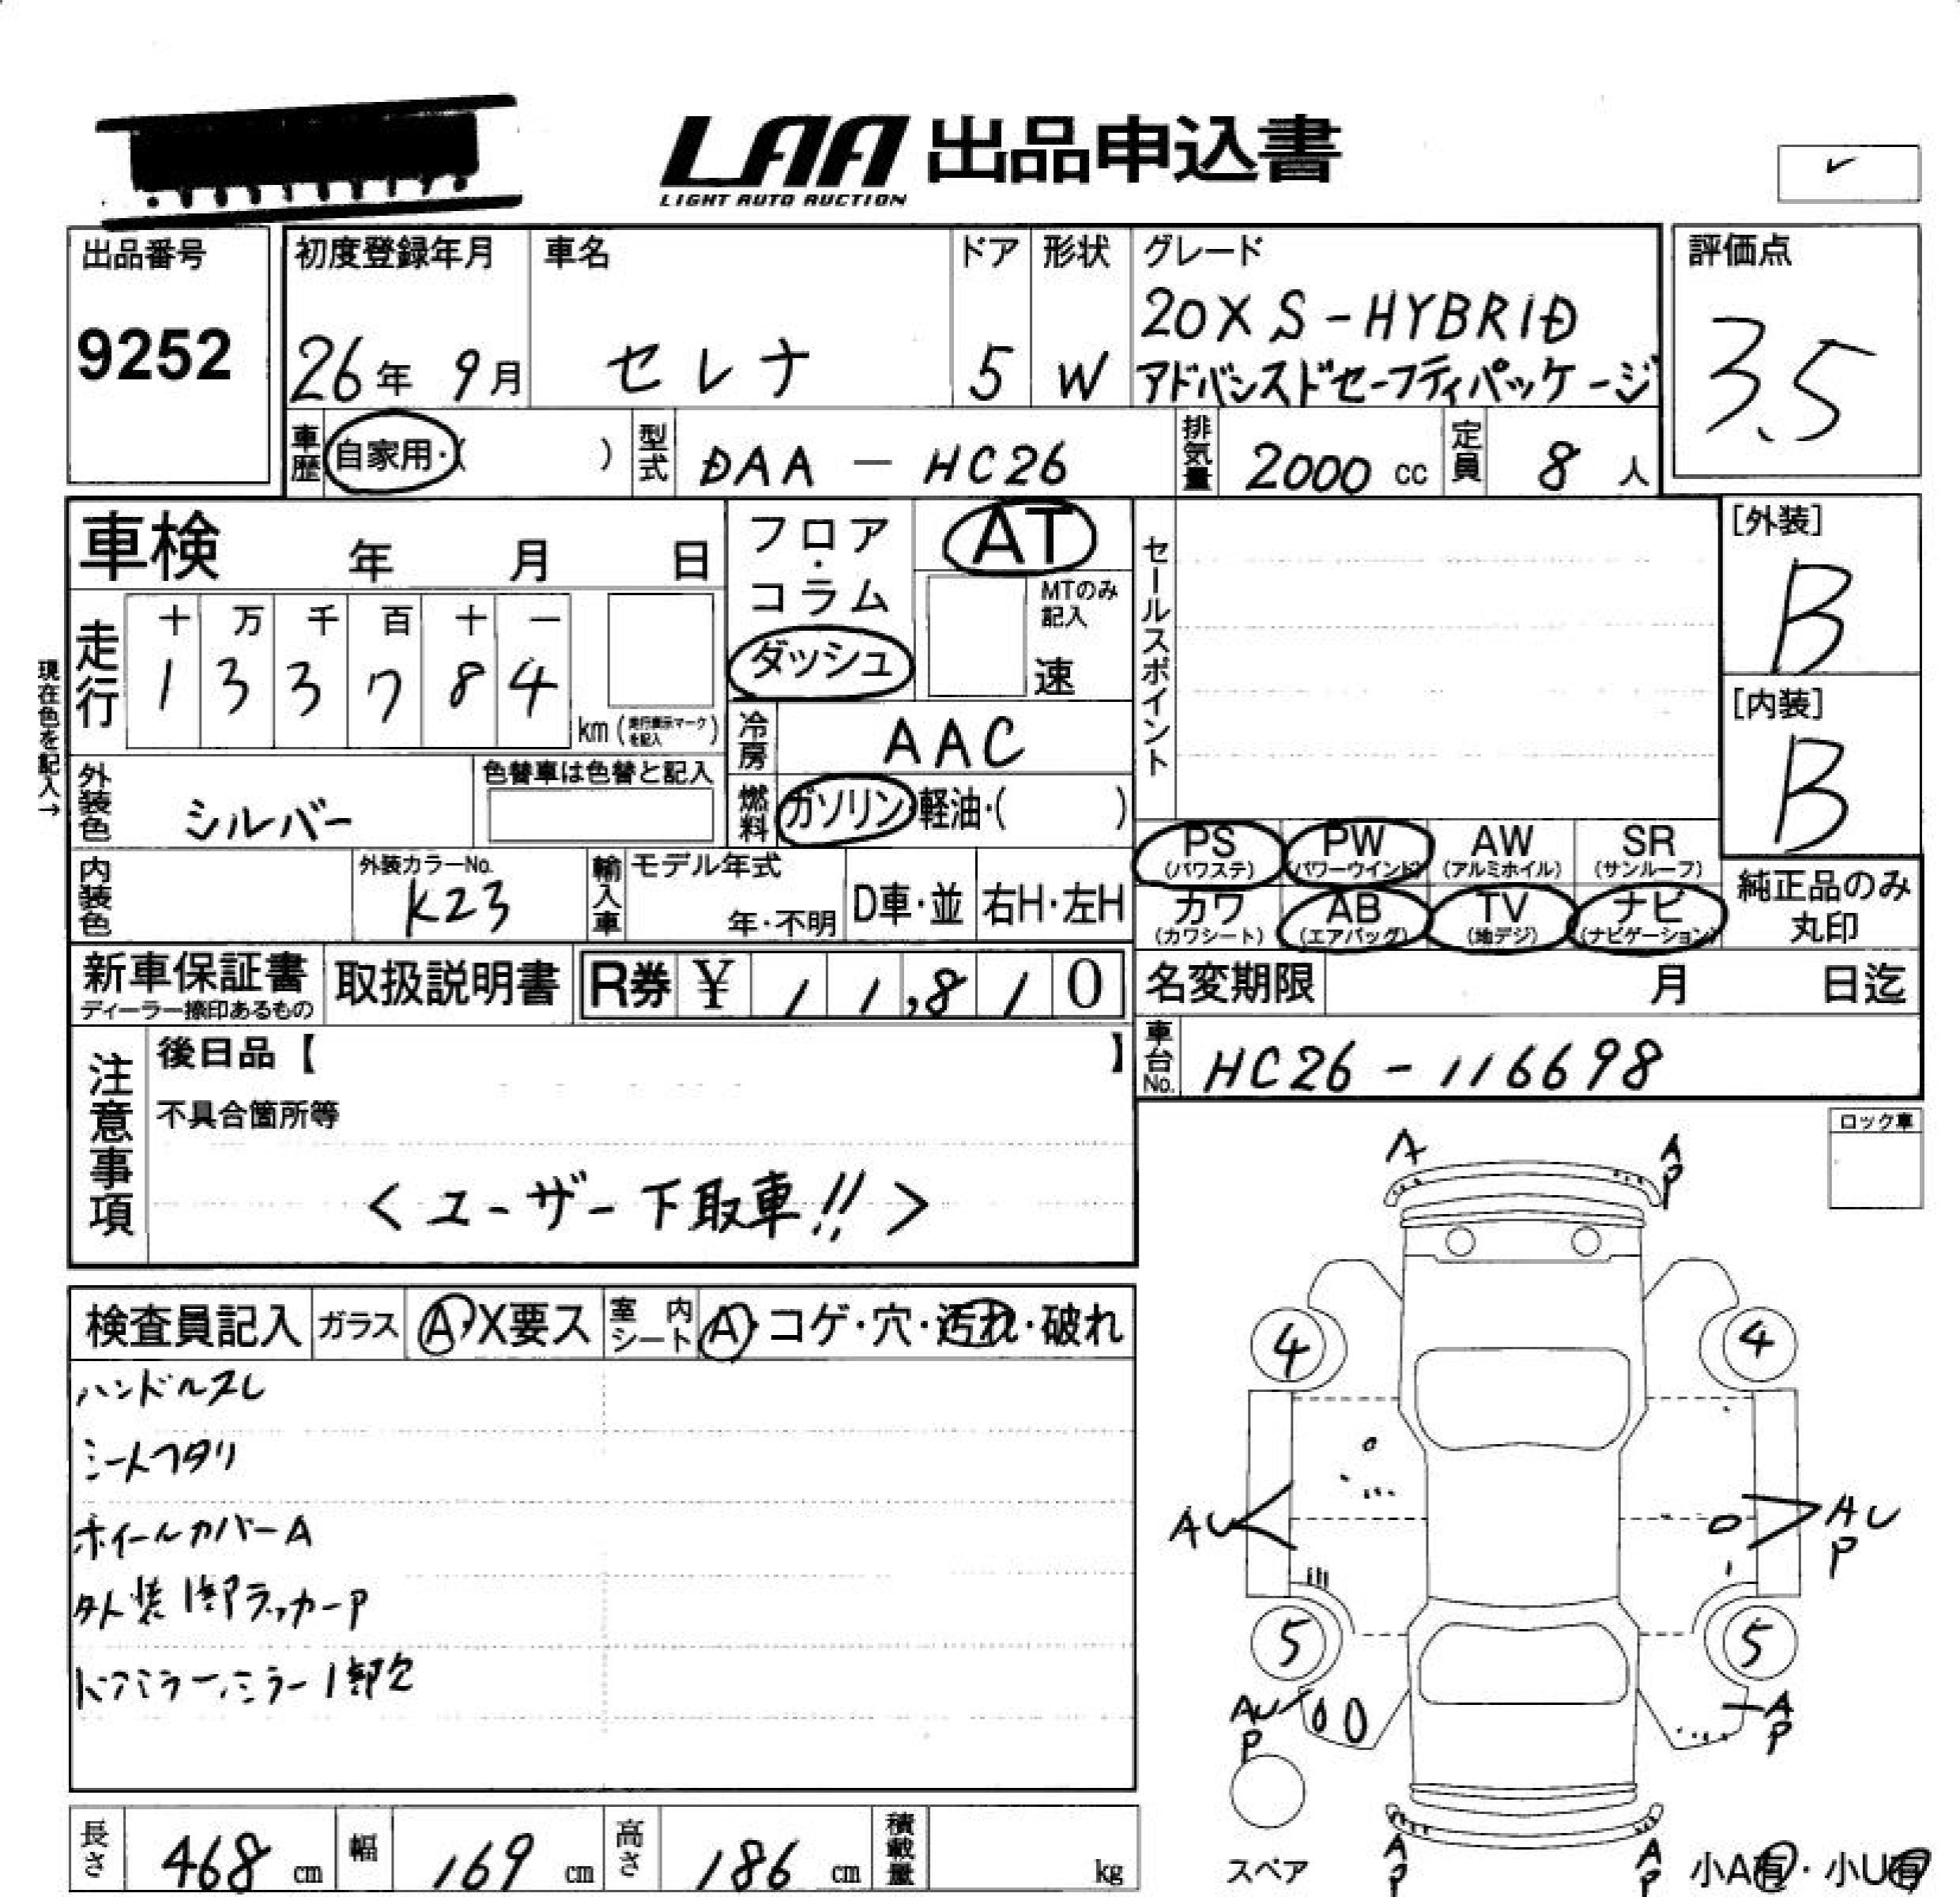 LAA 出品申込書
LIGHT AUTO AUCTION
出品番号
9252
初度登録年月
26年 9月
車名
セレナ
ドア
5
形状
W
グレード
20X S-HYBRID
アドバンスドセーフティパッケージ
評価点
3.5
車歴
自家用・( )
型式
DAA - HC26
排気量
2000 cc
定員
8 人
車検 年 月 日
フロア・コラム
ダッシュ
AT
MTのみ記入
速
現在色を記入→
走行
十 万 千 百 十 一
1 3 3 7 8 4
km (走行表示マークを記入)
冷房
AAC
外装色
シルバー
色替車は色替と記入
燃料
ガソリン・軽油・( )
内装色
外装カラーNo.
K23
輸入車
モデル年式
年・不明
D車・並
右H・左H
セールスポイント
[外装]
B
[内装]
B
PS
(パワステ)
PW
(パワーウインド)
AW
(アルミホイル)
SR
(サンルーフ)
カワ
(カワシート)
AB
(エアバッグ)
TV
(地デジ)
ナビ
(ナビゲーション)
純正品のみ
丸印
新車保証書
ディーラー捺印あるもの
取扱説明書
R券 ¥ 11,810
名変期限 月 日迄
車台No.
HC26 - 116698
注意事項
後日品【 】
不具合箇所等
<ユーザー下取車!!>
ロック車
検査員記入
ガラス
A・X要ス
室内シート
A・コゲ・穴・汚れ・破れ
ハンドルスレ
シートヘタリ
ホイールカバーA
外装1部ラッカーP
ドアミラーミラー1部欠
A
A
P
4
4
AU
AU
P
5
5
AU
P
A
P
A
P
A
P
スペア
小A有・小U有
長さ
468 cm
幅
169 cm
高さ
186 cm
積載量
kg